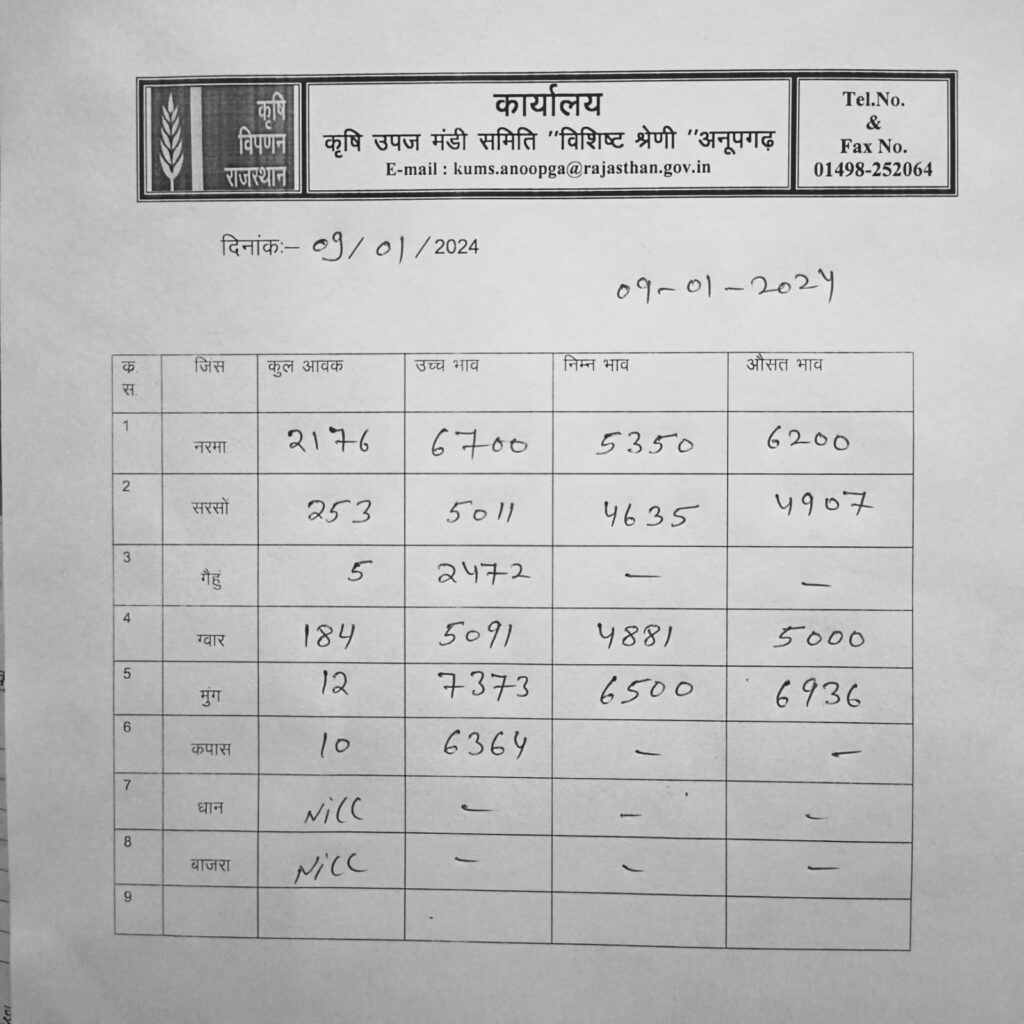 कृषि
विपणन
राजस्थान
कार्यालय
कृषि उपज मंडी समिति "विशिष्ट श्रेणी "अनूपगढ़
E-mail : kums.anoopga@rajasthan.gov.in
Tel.No.
&
Fax No.
01498-252064
दिनांकः– 09/01/2024
09-01-2024
क्र. स. जिंस कुल आवक उच्च भाव निम्न भाव औसत भाव
1 नरमा 2176 6700 5350 6200
2 सरसों 253 5011 4635 4907
3 गैहुं 5 2472 — —
4 ग्वार 184 5091 4881 5000
5 मुंग 12 7373 6500 6936
6 कपास 10 6364 — —
7 धान Nill — — —
8 बाजरा Nill — — —
9